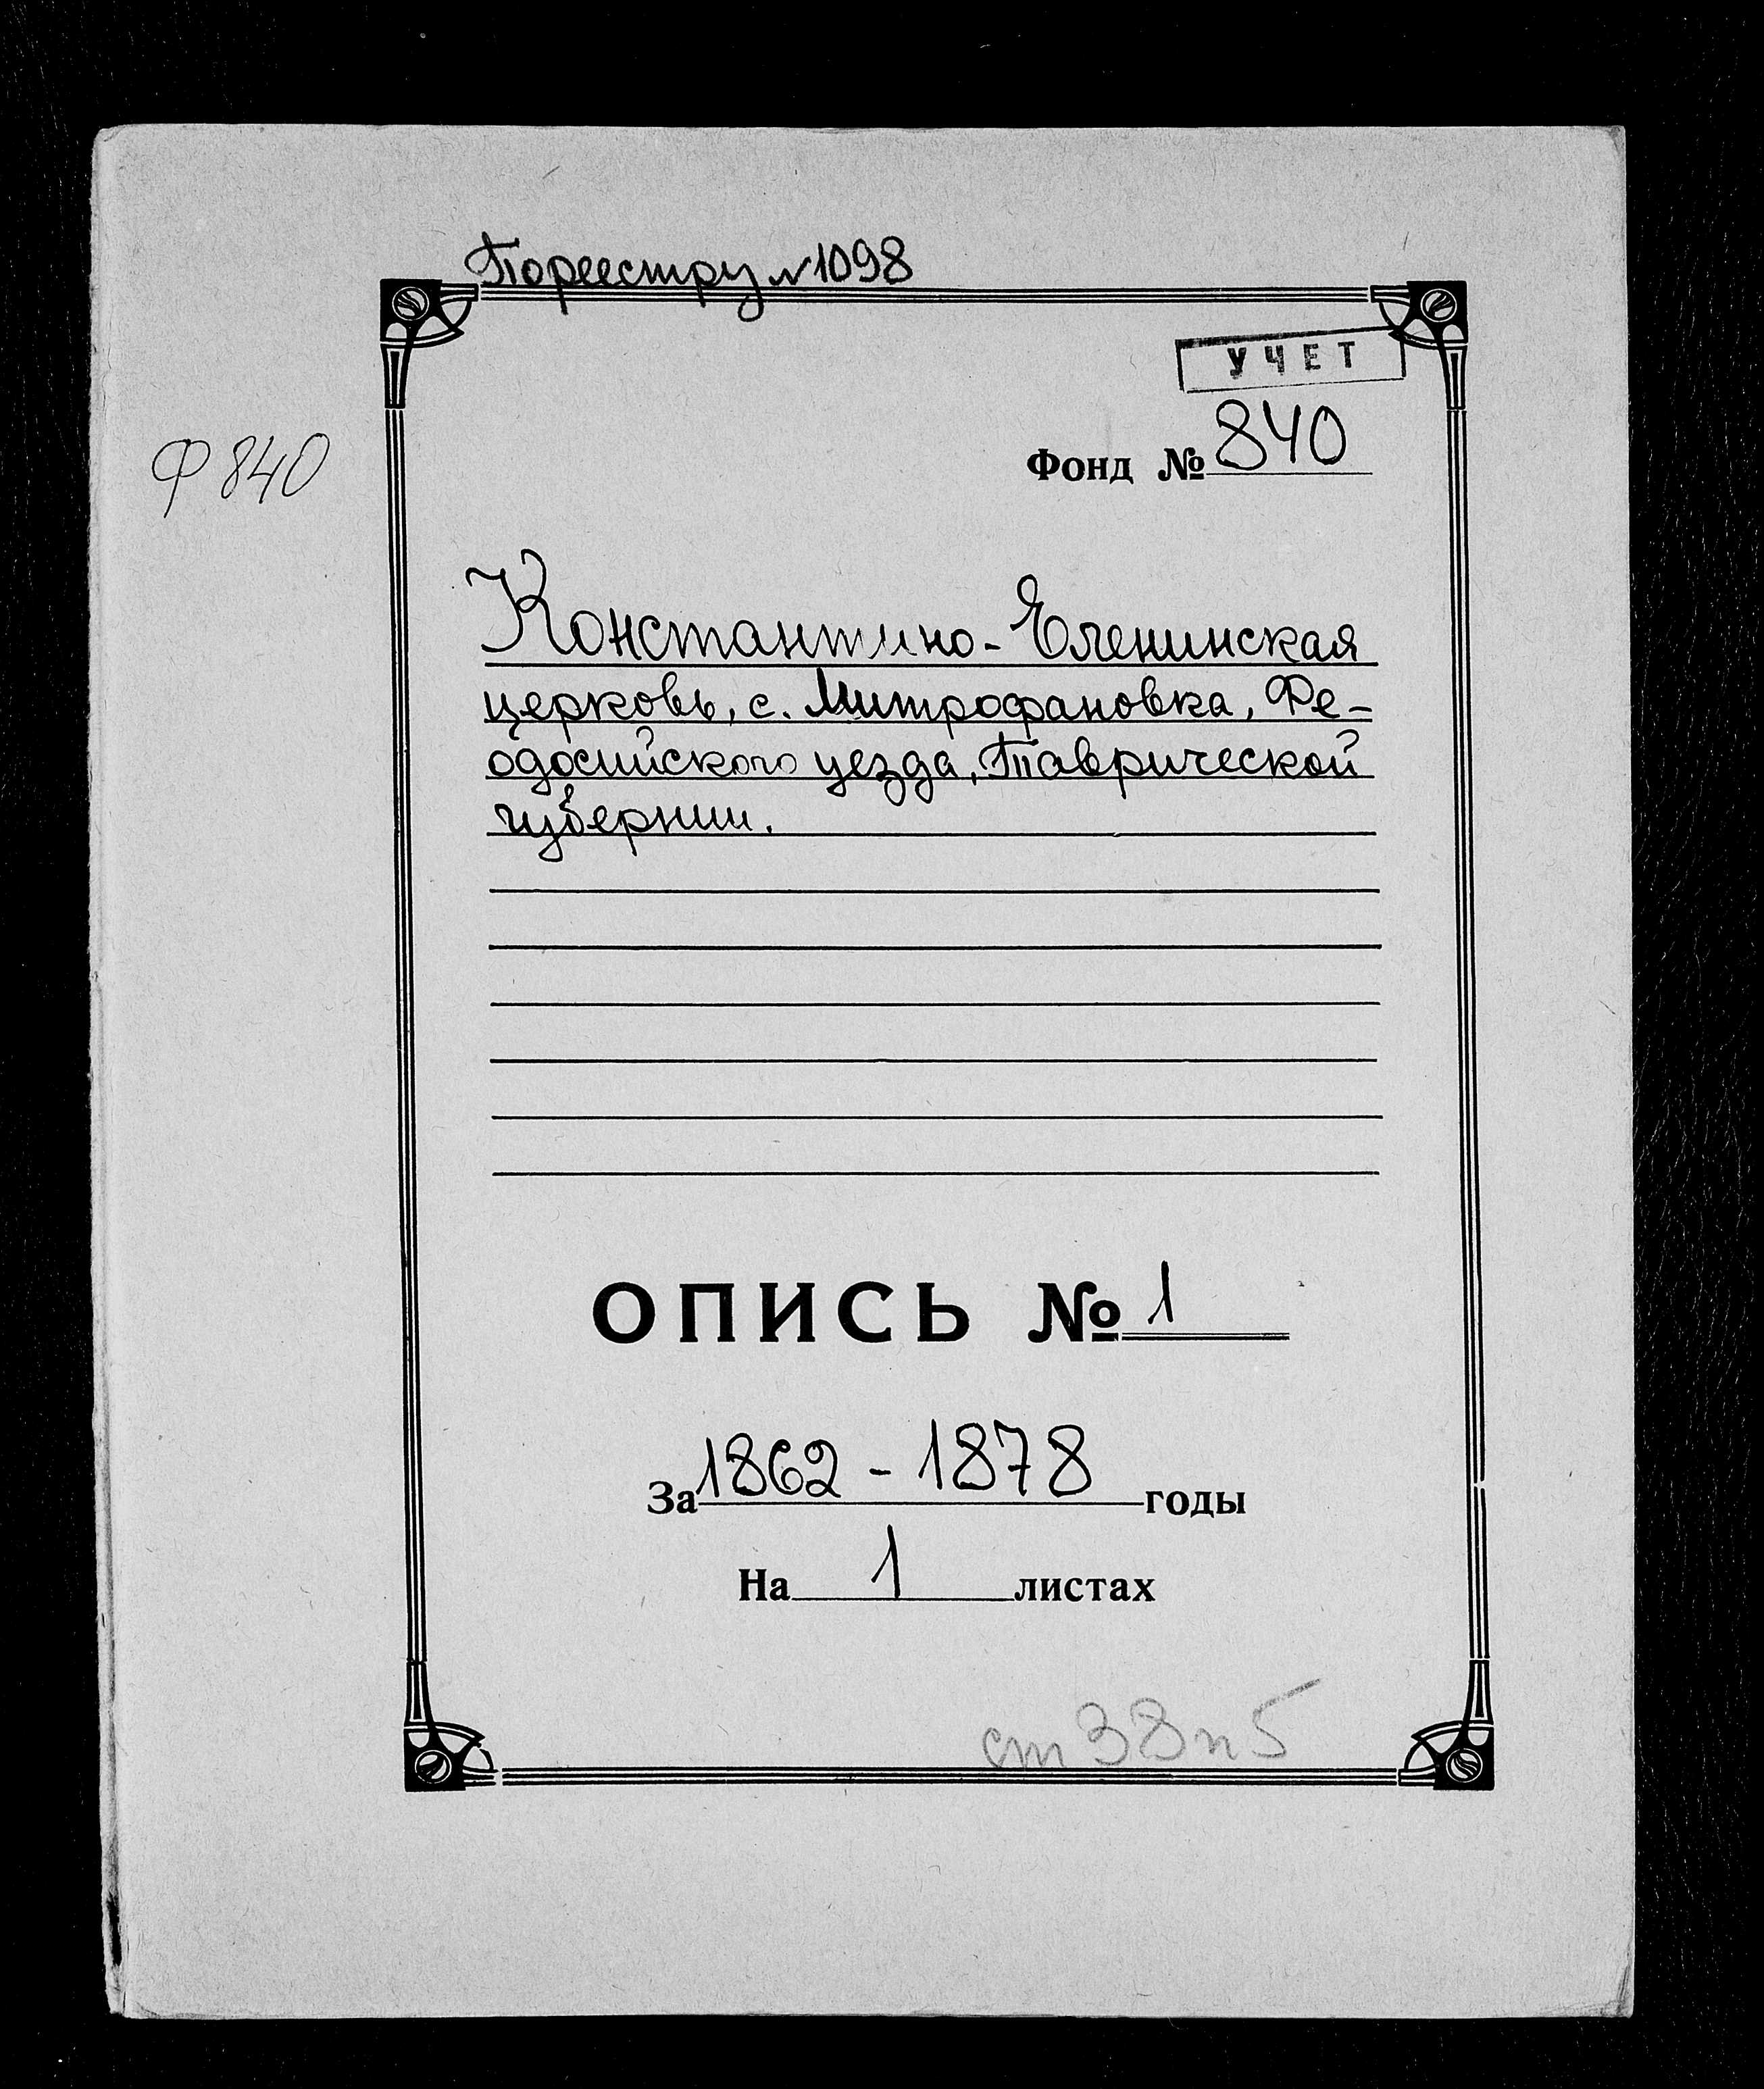 По реестру № 1098
УЧЕТ
Фонд № 840
Ф 840
Константино-Еленинская
церковь, с. Митрофановка, Фе-
одосийского уезда, Таврической
губернии.
ОПИСЬ № 1
За 1862 - 1878 годы
На 1 листах
ст 38 п 5